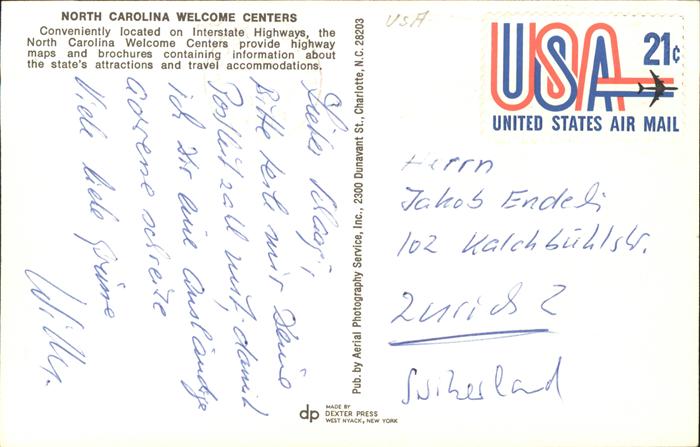 NORTH CAROLINA WELCOME CENTERS
Conveniently located on Interstate Highways, the
North Carolina Welcome Centers provide highway
maps and brochures containing information about
the state's attractions and travel accommodations.
Lieber
Bitte teile mir Deine
Postleitzahl mit, damit
ich Dir eine anständige
Adresse schreibe
Viele liebe Grüsse
Willy.
Pub. by Aerial Photography Service, Inc., 2300 Dunavant St., Charlotte, N.C. 28203
dp MADE BY
DEXTER PRESS
WEST NYACK, NEW YORK
USA
USA 21¢
UNITED STATES AIR MAIL
Herrn
Jakob Enderli
102 Kalchbühlstr.
Zürich 2
Switzerland